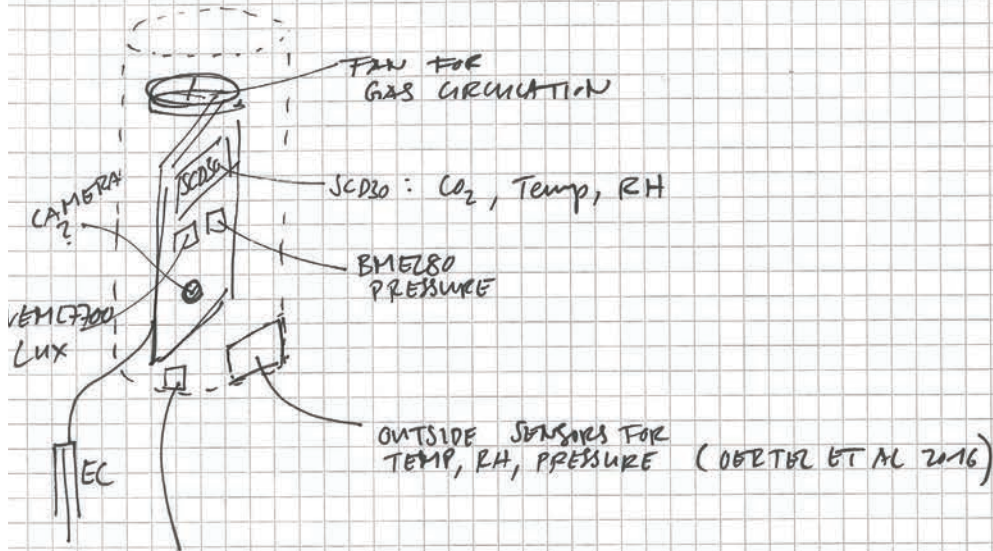 FAN FOR
GAS CIRCULATION
SCD30
SCD30 : CO₂, Temp, RH
CAMERA
?
BME280
PRESSURE
VEML7700
LUX
OUTSIDE SENSORS FOR
TEMP, RH, PRESSURE (OERTEL ET AL 2016)
EC